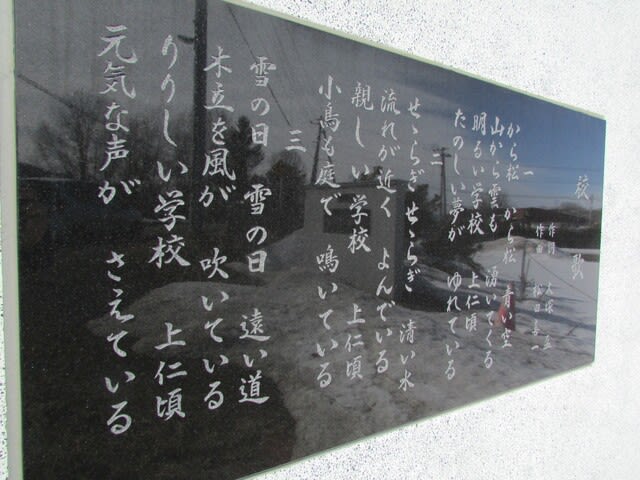 校歌
作詞 大塚
作曲 松田喜一
一
から松 から松 青い空
山から雲も 湧いてくる
明るい学校 上仁頃
たのしい夢が ゆれている
二
せゝらぎ せゝらぎ 清い水
流れが近く よんでいる
親しい学校 上仁頃
小鳥も庭で 鳴いている
三
雪の日 雪の日 遠い道
木立を風が 吹いている
りりしい学校 上仁頃
元気な声が さえている